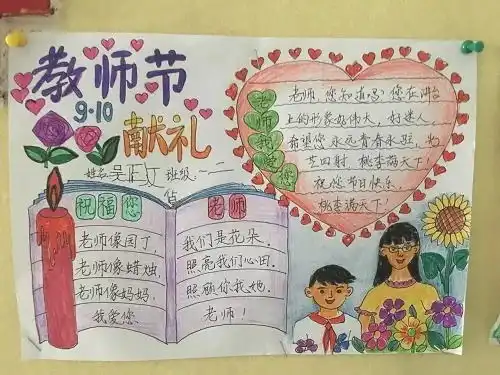 教师节
9·10
献礼
姓名: 班级:一二
祝福您
老师像园丁,
老师像蜡烛,
老师像妈妈,
我爱您
老师
我们是花朵.
照亮我们心田.
照顾你我她.
老师!
老师我爱您
老师 您知道吗?您在讲台
上的形象好伟大,好迷人
希望您永远青春永驻,光
芒四射 桃李满天下!
祝您节日快乐.
桃李满天下!